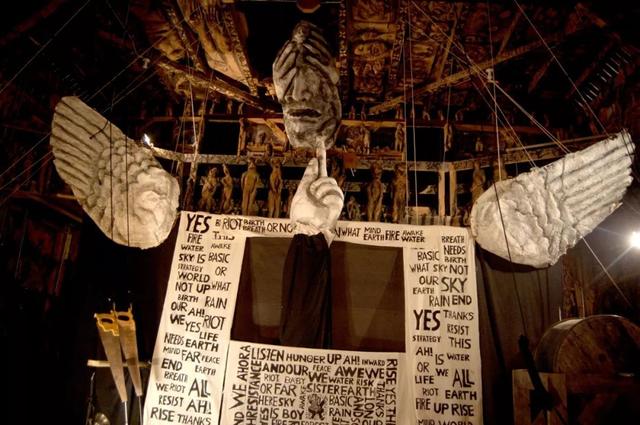 YES RIOT BIRTH OR NO WHAT MIND FIRE AWAKE
BREATH EARTH WATER
FIRE THIS
WATER
SKY IS BASIC
STRATEGY OR
WORLD
NOT UP WHAT
BIRTH RAIN
OUR AH!
WE YES, RIOT
LIFE
NEEDS EARTH
MIND FAR PEACE
END EARTH
BREATH
WE RIOT ALL
RESIST AH!
RISE THANKS
WE AHORA
RESISTANCE
LISTEN HUNGER UP AH! INWARD
AND OUR PEACE AWE WE
RIOT BABY WE WATER RISK
OR FAR SISTER EARTH
HERE SKY BASIC
IS BOY RAIN
RISE YES TH
BREATH
BASIC NEEDS
WHAT SKY NOT
OUR SKY
EARTH
RAIN END
YES THANKS
RESIST
STRATEGY THIS
AH! IS
WE WATER
OR WE
LIFE ALL
RIOT
FIRE UP RISE